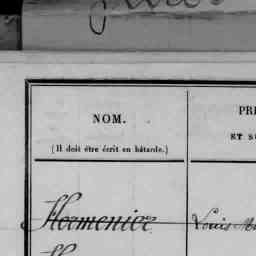 NOM.
(Il doit être écrit en bâtarde.)
PRE
ET S
Hermenier
Louis